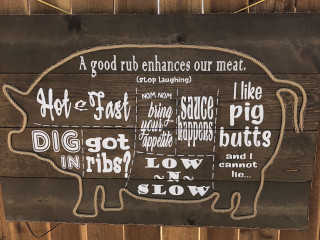 A good rub enhances our meat.
(stop laughing)
Hot & Fast
DIG
IN
got
ribs?
NOM NOM
bring
your
appetite
sauce
happens
LOW
N
SLOW
I like
pig
butts
and I
cannot
lie...